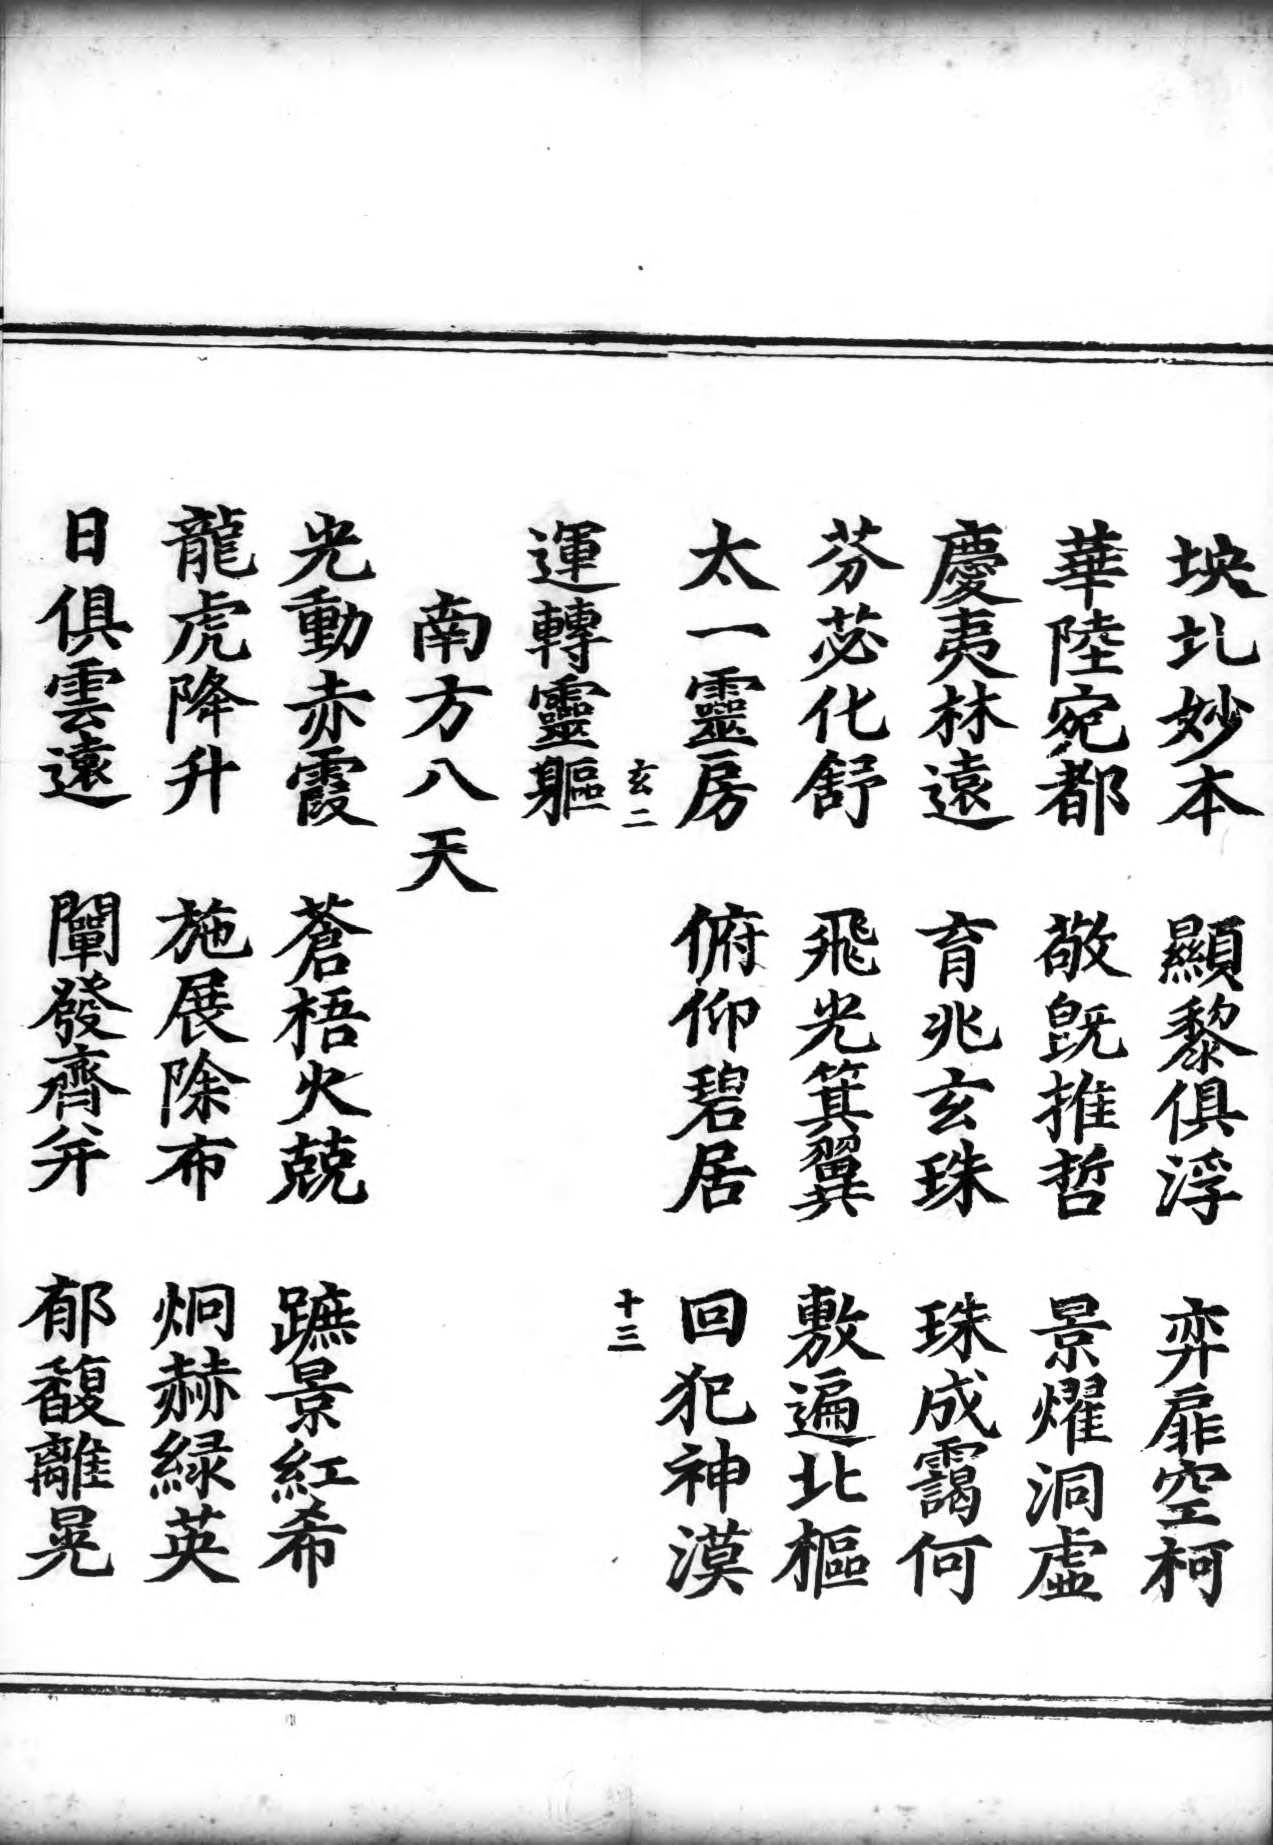 坱圠妙本　顯黎俱浮　弈扉空柯
華陸宛都　敬旣推哲　景燿洞虛
慶夷林遠　育兆玄珠　珠成靄何
芬苾化舒　飛光箕翼　敷遍北樞
太一靈房　俯仰碧居　回犯神漠
玄二　十三
運轉靈軀
南方八天
光動赤霞　蒼梧火兢　蹠景紅希
龍虎降升　施展除布　炯赫緑英
日俱雲遠　闡發齊并　郁馥離晃